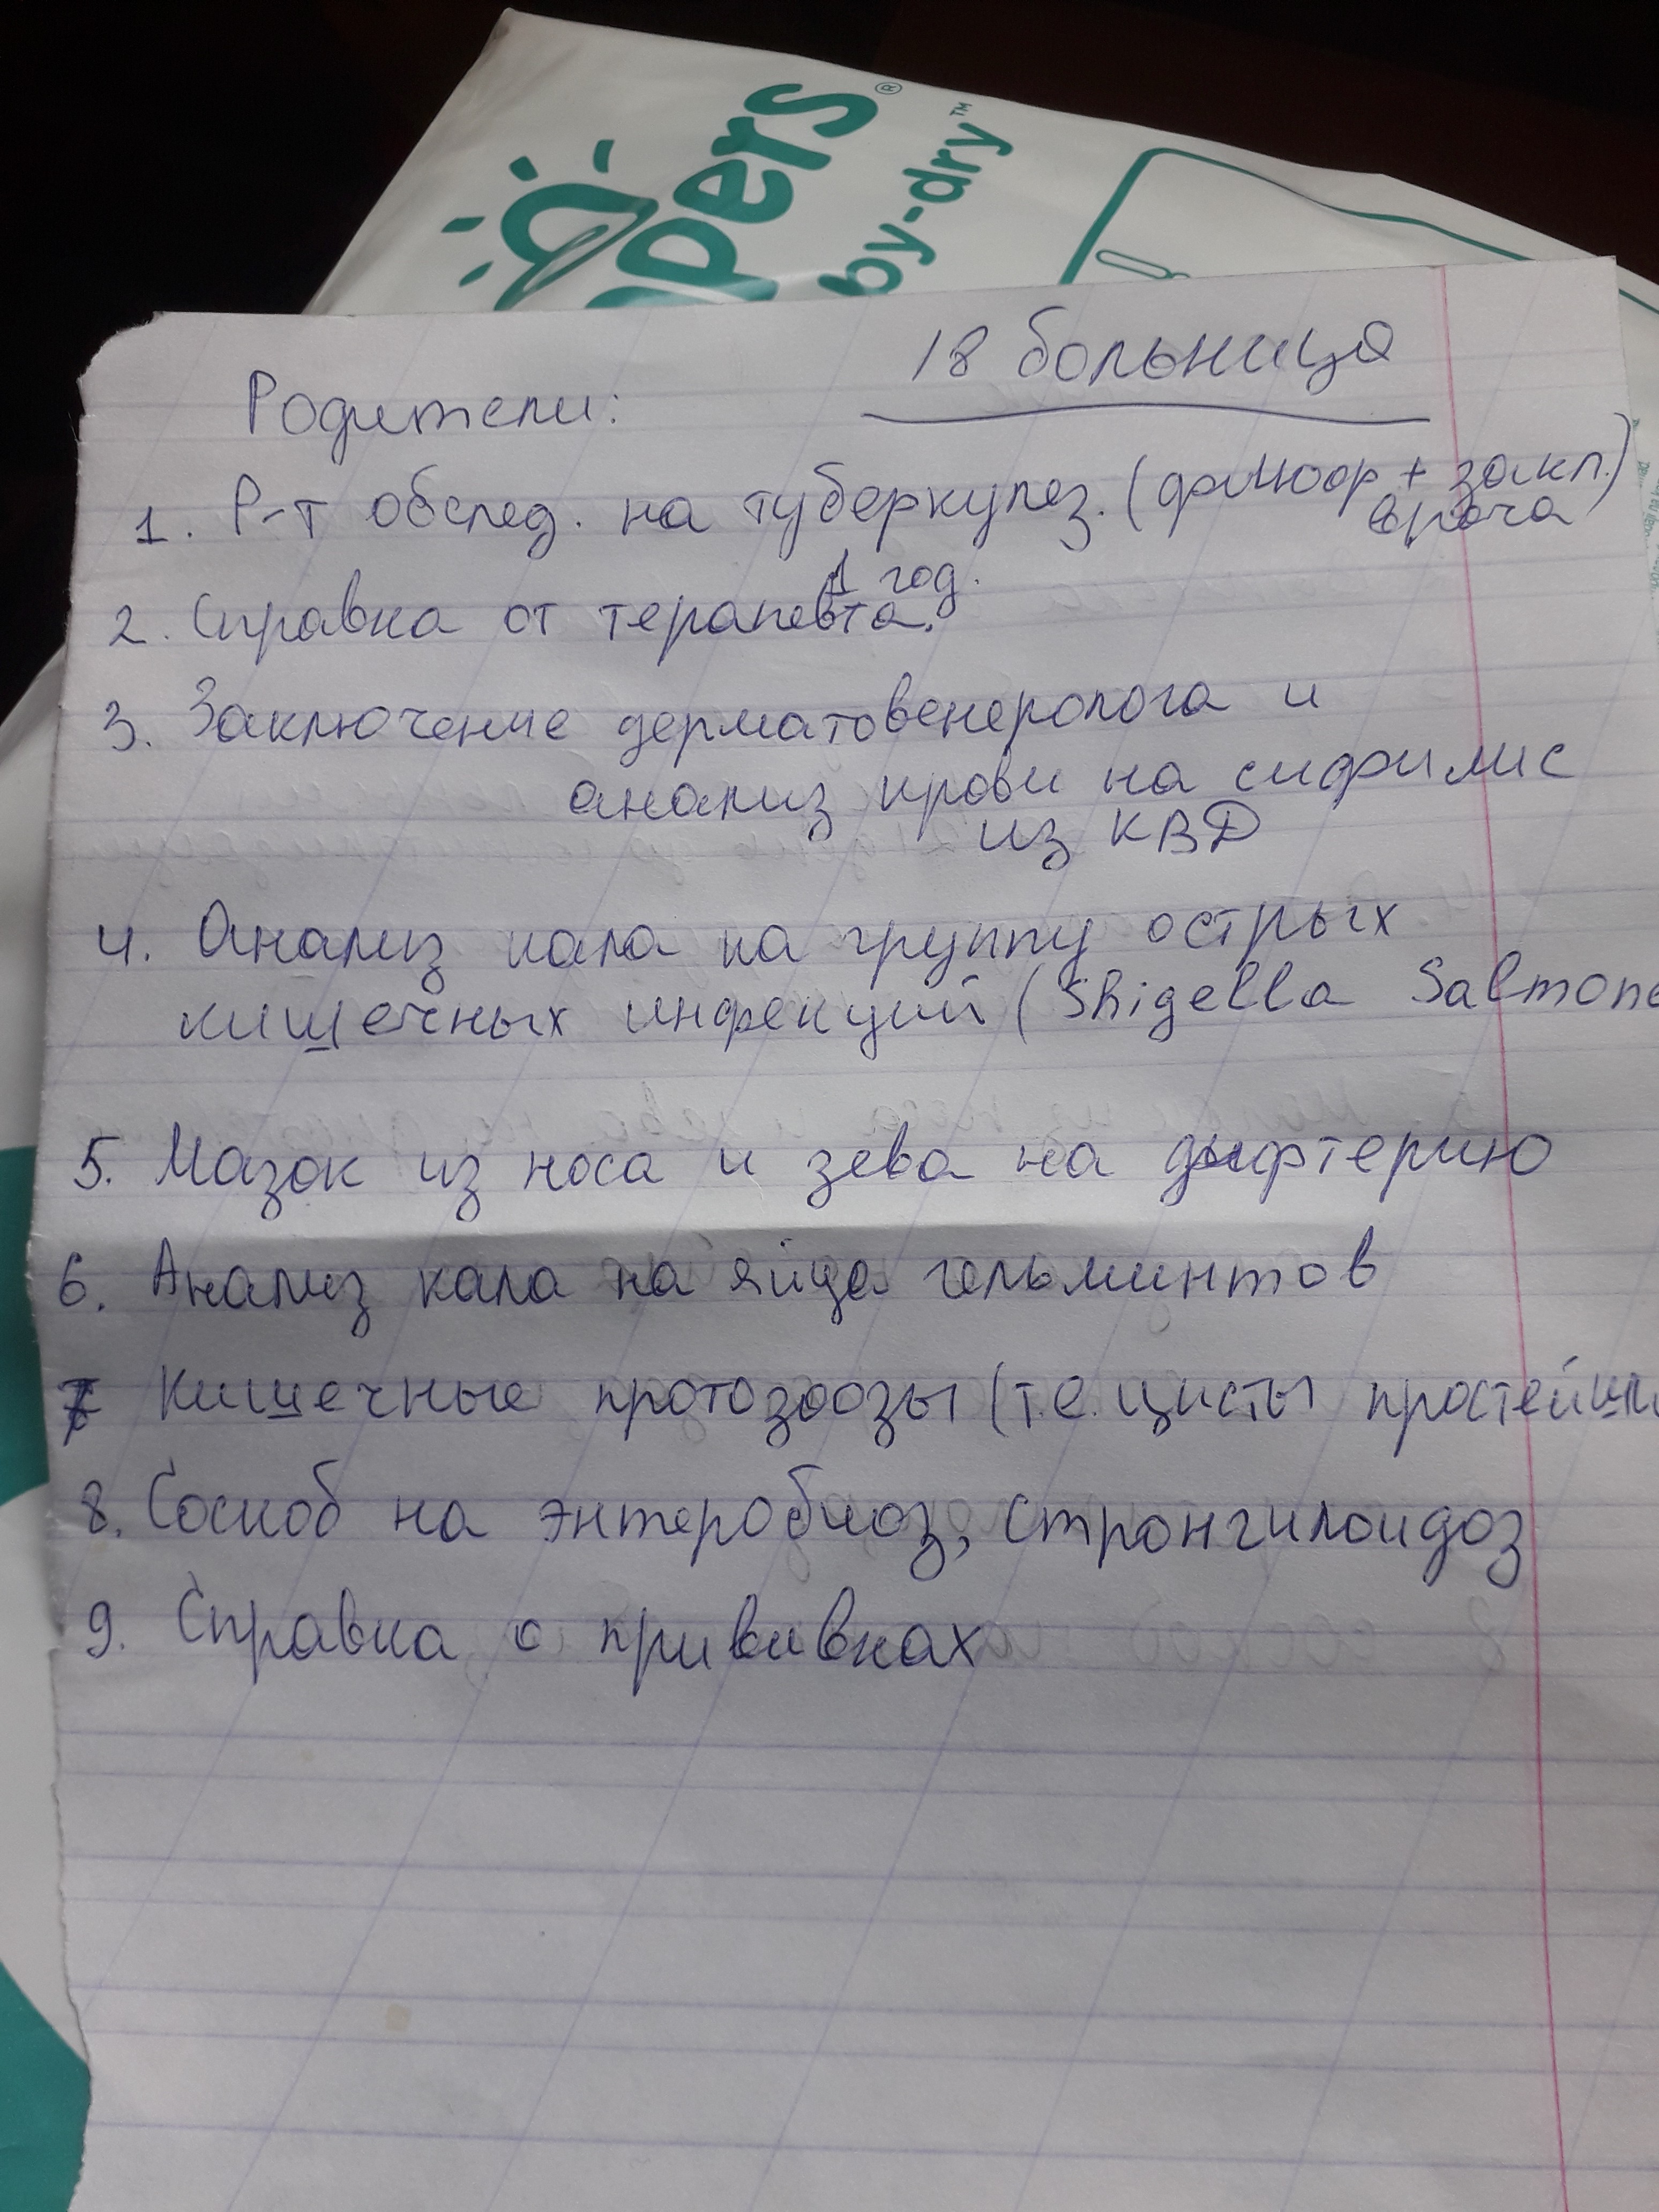 pers®
by-dry™
18 больница
Родители:
1. Р-т обслед. на туберкулез. (флюор + закл.
врача)
1 год.
2. Справка от терапевта.
3. Заключение дерматовенеролога и
анализ крови на сифилис
из КВД
4. Анализ кала на группу острых
кишечных инфекций (Shigella Salmone
5. Мазок из носа и зева на дифтерию
6. Анализ кала на яйца гельминтов
7 Кишечные протозоозы (т.е. цисты простейши
8. Соскоб на энтеробиоз, стронгилоидоз
9. Справка о прививках